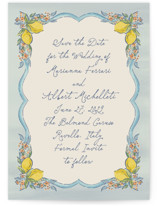 Save the Date
for the Wedding of
Marianna Ferrari
and
Albert Michelotti
June 27,
The Belmond Caruso
Ravello, Italy
Formal Invite
to follow